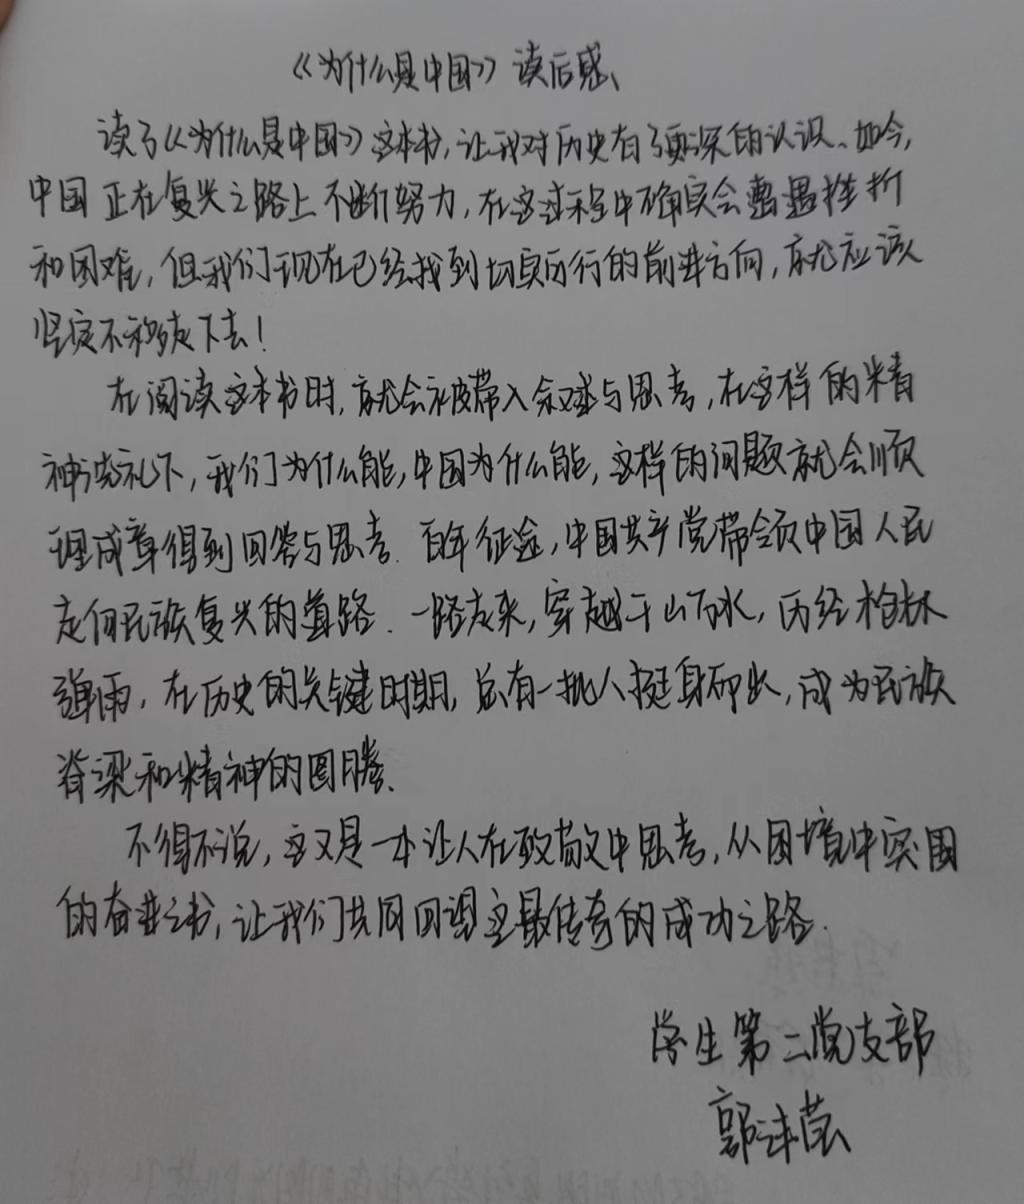 《为什么是中国》读后感
读了《为什么是中国》这本书,让我对历史有了更深的认识。如今,
中国正在复兴之路上不断努力,在这过程中确实会遭遇挫折
和困难,但我们现在已经找到切实历行的前进方向,就应该
坚定不移走下去!
在阅读这本书时,就会被带入叙述与思考,在这样的精
神洗礼下,我们为什么能,中国为什么能,这样的问题就会顺
理成章得到回答与思考.百年征途,中国共产党带领中国人民
走向民族复兴的道路.一路走来,穿越千山万水,历经枪林
弹雨,在历史的关键时期,总有一批人挺身而出,成为民族
脊梁和精神的图腾.
不得不说,这又是一本让人在致敬中思考,从困境中突围
的奋进之书,让我们共同回溯这最传奇的成功之路.
学生第二党支部
郭